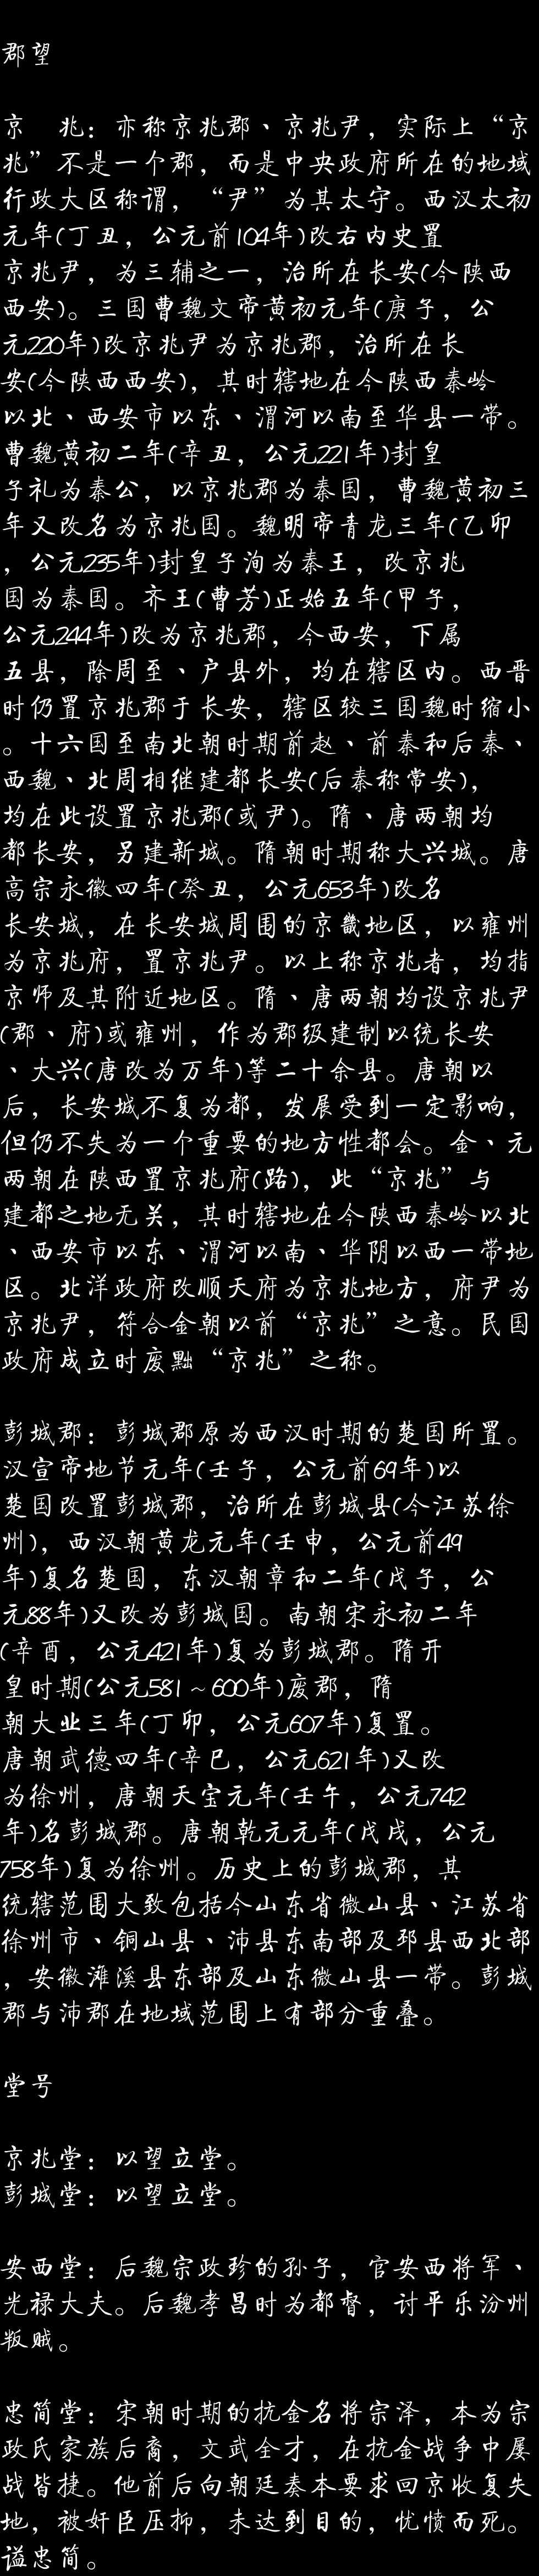 郡望
京　兆：亦称京兆郡、京兆尹，实际上“京
兆”不是一个郡，而是中央政府所在的地域
行政大区称谓，“尹”为其太守。西汉太初
元年(丁丑，公元前104年)改右内史置
京兆尹，为三辅之一，治所在长安(今陕西
西安)。三国曹魏文帝黄初元年(庚子，公
元220年)改京兆尹为京兆郡，治所在长
安(今陕西西安)，其时辖地在今陕西秦岭
以北、西安市以东、渭河以南至华县一带。
曹魏黄初二年(辛丑，公元221年)封皇
子礼为秦公，以京兆郡为秦国，曹魏黄初三
年又改名为京兆国。魏明帝青龙三年(乙卯
，公元235年)封皇子洵为秦王，改京兆
国为秦国。齐王(曹芳)正始五年(甲子，
公元244年)改为京兆郡，今西安，下属
五县，除周至、户县外，均在辖区内。西晋
时仍置京兆郡于长安，辖区较三国魏时缩小
。十六国至南北朝时期前赵、前秦和后秦、
西魏、北周相继建都长安(后秦称常安)，
均在此设置京兆郡(或尹)。隋、唐两朝均
都长安，另建新城。隋朝时期称大兴城。唐
高宗永徽四年(癸丑，公元653年)改名
长安城，在长安城周围的京畿地区，以雍州
为京兆府，置京兆尹。以上称京兆者，均指
京师及其附近地区。隋、唐两朝均设京兆尹
(郡、府)或雍州，作为郡级建制以统长安
、大兴(唐改为万年)等二十余县。唐朝以
后，长安城不复为都，发展受到一定影响，
但仍不失为一个重要的地方性都会。金、元
两朝在陕西置京兆府(路)，此“京兆”与
建都之地无关，其时辖地在今陕西秦岭以北
、西安市以东、渭河以南、华阴以西一带地
区。北洋政府改顺天府为京兆地方，府尹为
京兆尹，符合金朝以前“京兆”之意。民国
政府成立时废黜“京兆”之称。
彭城郡：彭城郡原为西汉时期的楚国所置。
汉宣帝地节元年(壬子，公元前69年)以
楚国改置彭城郡，治所在彭城县(今江苏徐
州)，西汉朝黄龙元年(壬申，公元前49
年)复名楚国，东汉朝章和二年(戊子，公
元88年)又改为彭城国。南朝宋永初二年
(辛酉，公元421年)复为彭城郡。隋开
皇时期(公元581～600年)废郡，隋
朝大业三年(丁卯，公元607年)复置。
唐朝武德四年(辛巳，公元621年)又改
为徐州，唐朝天宝元年(壬午，公元742
年)名彭城郡。唐朝乾元元年(戊戌，公元
758年)复为徐州。历史上的彭城郡，其
统辖范围大致包括今山东省微山县、江苏省
徐州市、铜山县、沛县东南部及邳县西北部
，安徽濉溪县东部及山东微山县一带。彭城
郡与沛郡在地域范围上有部分重叠。
堂号
京兆堂：以望立堂。
彭城堂：以望立堂。
安西堂：后魏宗政珍的孙子，官安西将军、
光禄大夫。后魏孝昌时为都督，讨平乐汾州
叛贼。
忠简堂：宋朝时期的抗金名将宗泽，本为宗
政氏家族后裔，文武全才，在抗金战争中屡
战皆捷。他前后向朝廷奏本要求回京收复失
地，被奸臣压抑，未达到目的，忧愤而死。
谥忠简。